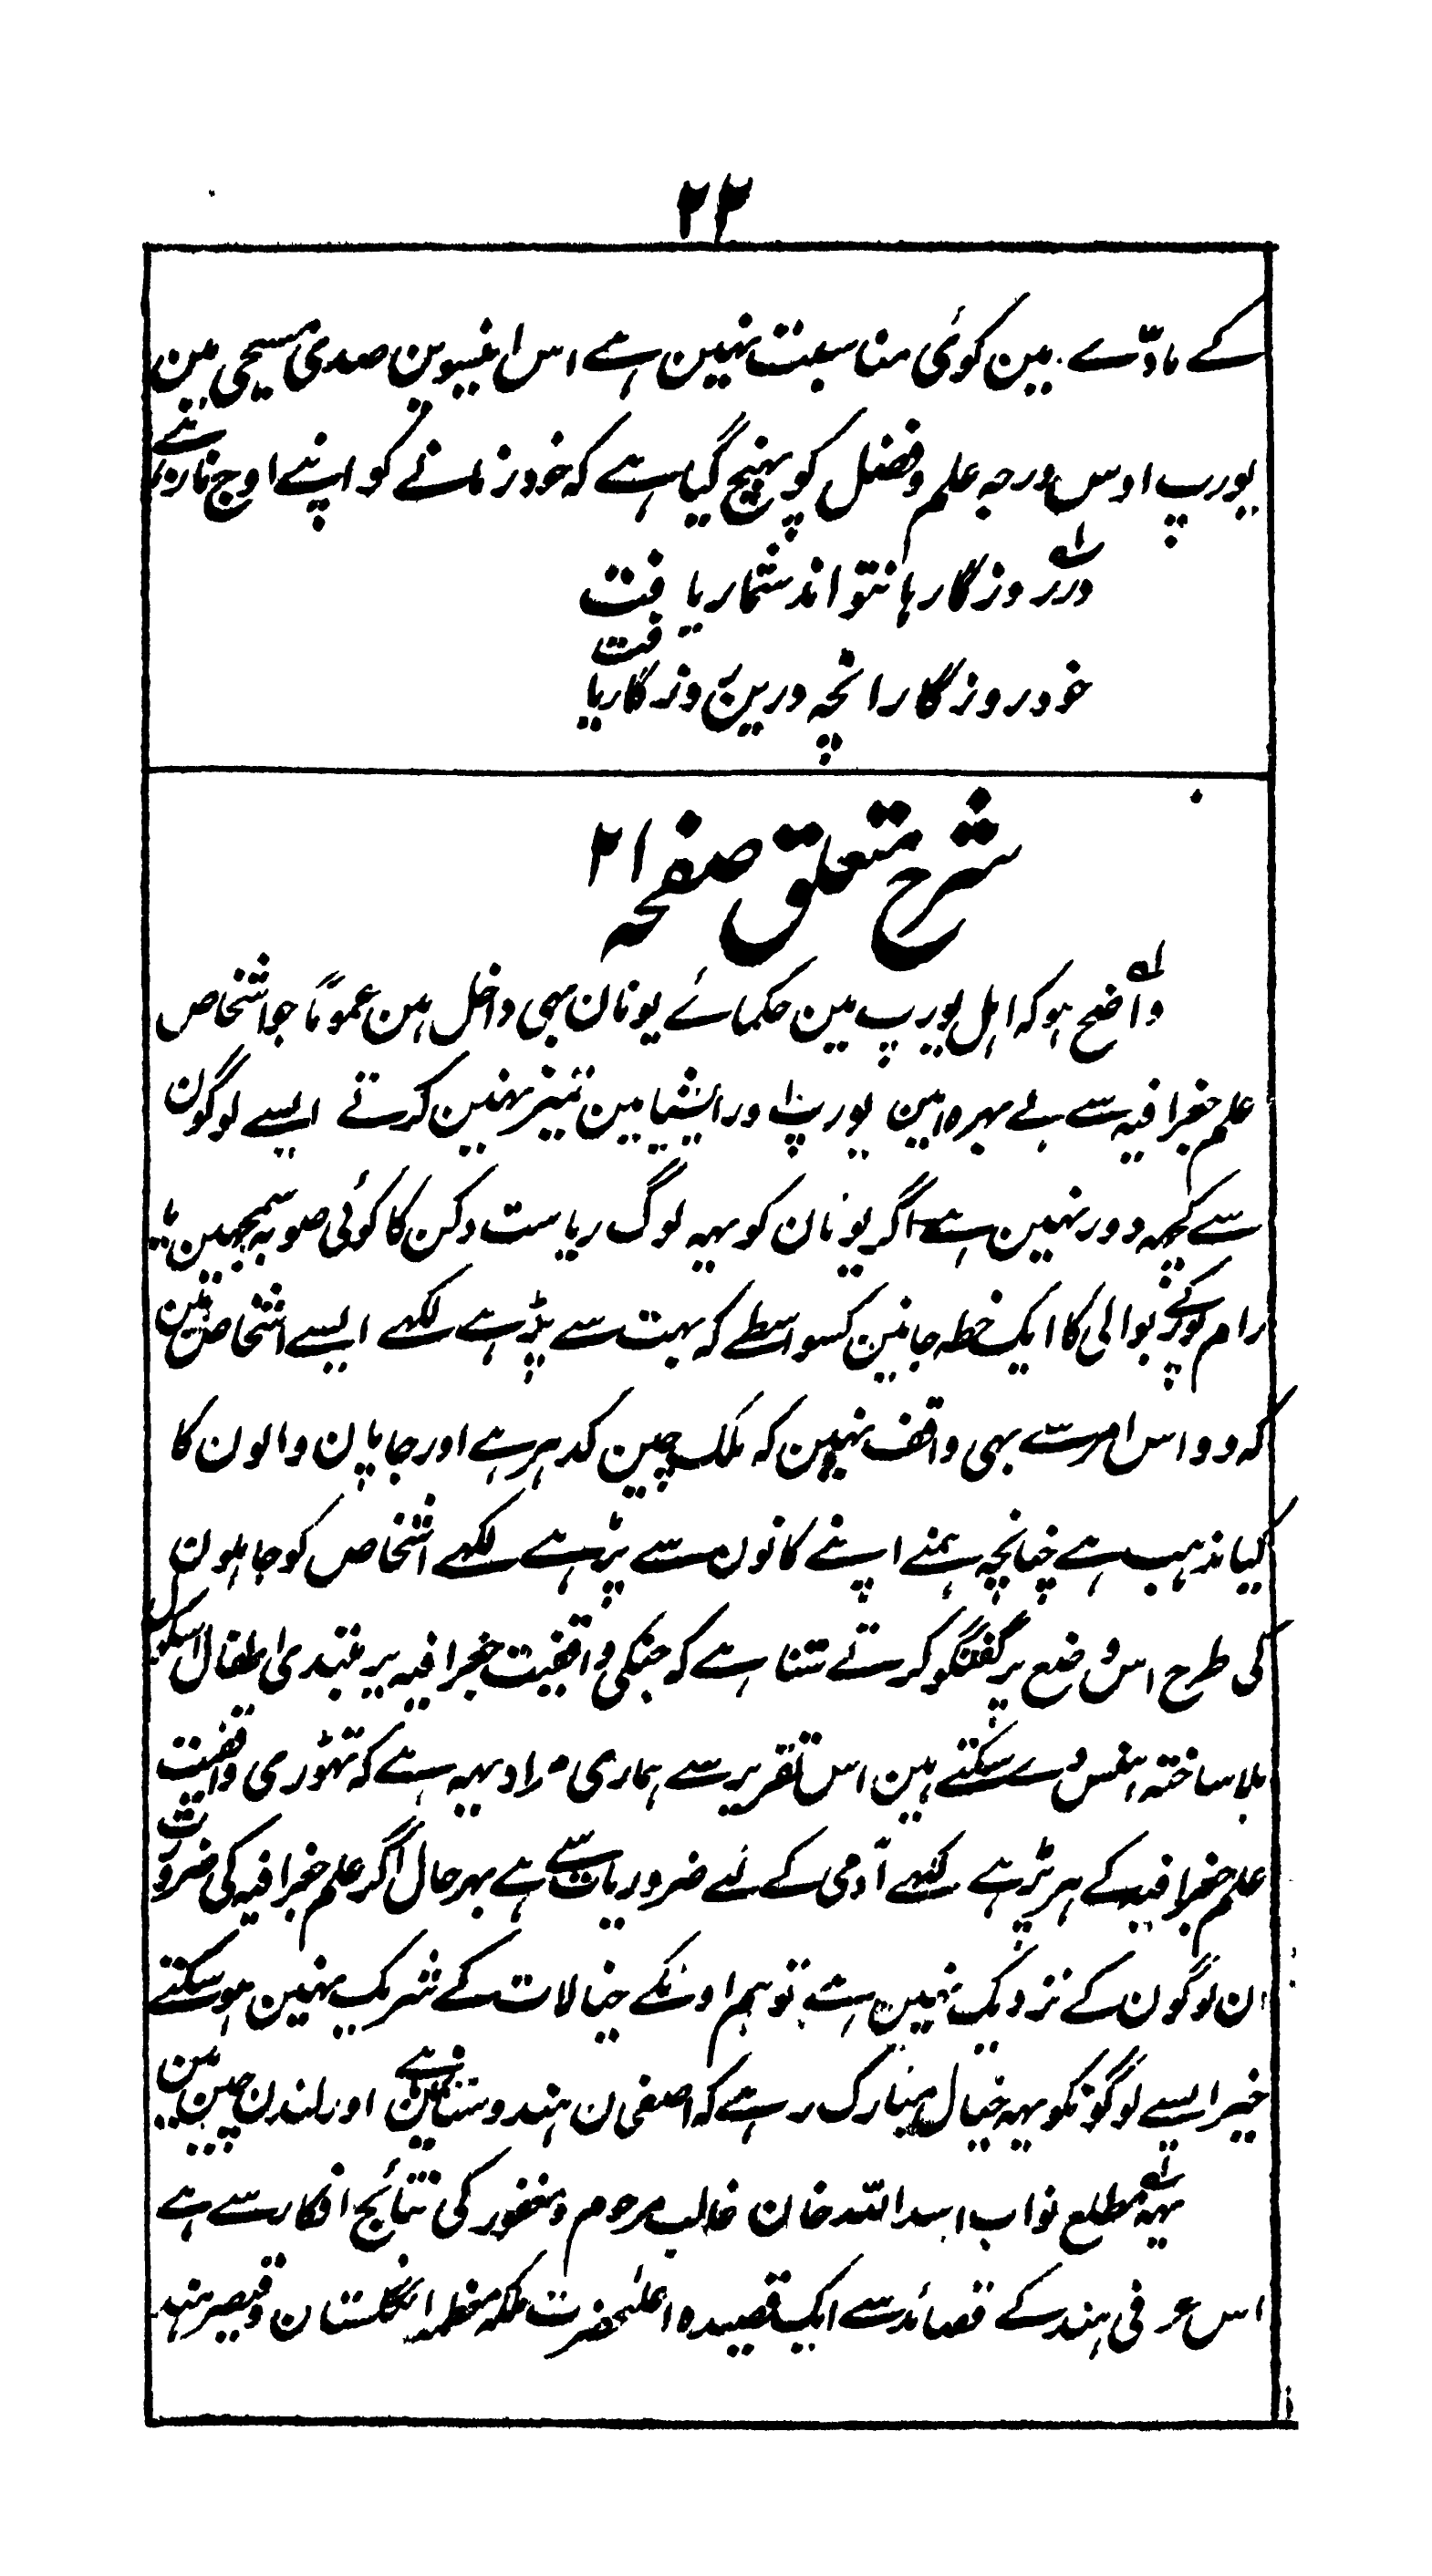 ۲۲
کے مادّے مین کوئی مناسبت نہین ہے اس انیسوین صدی مسیحی مین
یورپ اوس درجہ علم و فضل کو پہنچ گیا ہے کہ خود زمانے کو اپنے اوج نازہے
در روزگارہا نتواند شمار یافت
خود روزگار انچہ درین روزگار یافت
شرح متعلق صفحہ ۲۱
واضح ہو کہ اہل یورپ مین حکمائے یونان بہی داخل ہین عموماً جو اشخاص
علم جغرافیہ سے بے بہرہ ہین یورپ اور ایشیا مین تمیز نہین کرتے ایسے لوگون
سے کچہہ دور نہین ہے اگر یونان کو یہہ لوگ ریاست دکن کا کوئی صوبہ سمجہین یا
رام کے بوالی کا ایک خطہ جانین کسواسطے کہ بہت سے پڑہے لکہے ایسے اشخاص ہین
کہ وو اس امر سے بہی واقف نہین کہ ملک چین کدہر ہے اور جاپان والون کا
کیا مذہب ہے چنانچہ ہمنے اپنے کانون سے پڑہے لکہے اشخاص کو جاہلون
کی طرح اس وضع پر گفتگو کرتے سنا ہے کہ جنکی واقفیت جغرافیہ پر مبتدی اطفال اسکول
بلا ساختہ ہنس دے سکتے ہین اس تقریر سے ہماری مراد یہہ ہے کہ تہوڑی واقفیت
علم جغرافیہ کے ہر پڑہے لکہے آدمی کے لئے ضروریات سے ہے بہر حال اگر علم جغرافیہ کی ضرورت
ان لوگون کے نزدیک نہین ہے تو ہم اونکے خیالات کے شریک نہین ہو سکتے
خیر ایسے لوگونکو یہہ خیال مبارک رہے کہ اصفہان ہندوستانمین ہے اور لندن چین مین
یہہ مطلع نواب اسد اللہ خان غالب مرحوم و مغفور کی نتائج افکار سے ہے
اس عرفی ہند کے قصائد سے ایک قصیدہ اعلیٰحضرت ملکہ معظمہ انگلستان و قیصر ہند